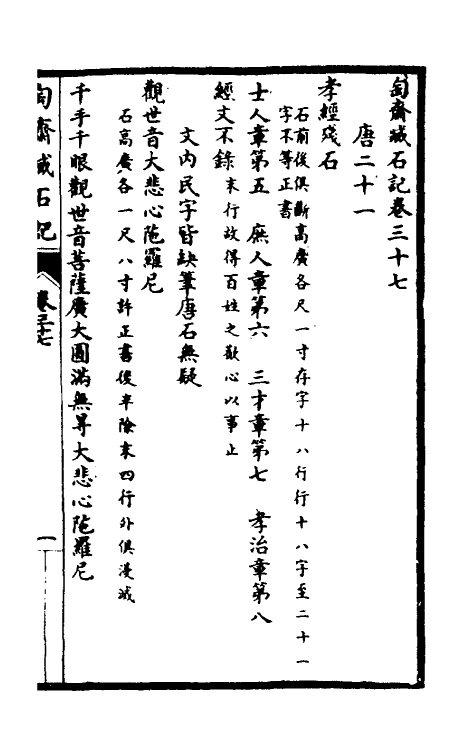 匋齋臧石記卷三十七
唐二十一
孝經殘石
石前後俱斷高廣各尺一寸存字十八行行十八字至二十一
字不等正書
士人章第五　庶人章第六　三才章第七　孝治章第八
經文不錄末行故得百姓之歡心以事止
文內民字皆缺筆唐石無疑
觀世音大悲心陁羅尼
石高廣各一尺八寸許正書後半除末四行外俱漫滅
千手千眼觀世音菩薩廣大圓滿無㝵大悲心陁羅尼
匋齋臧石記
卷三十七
一